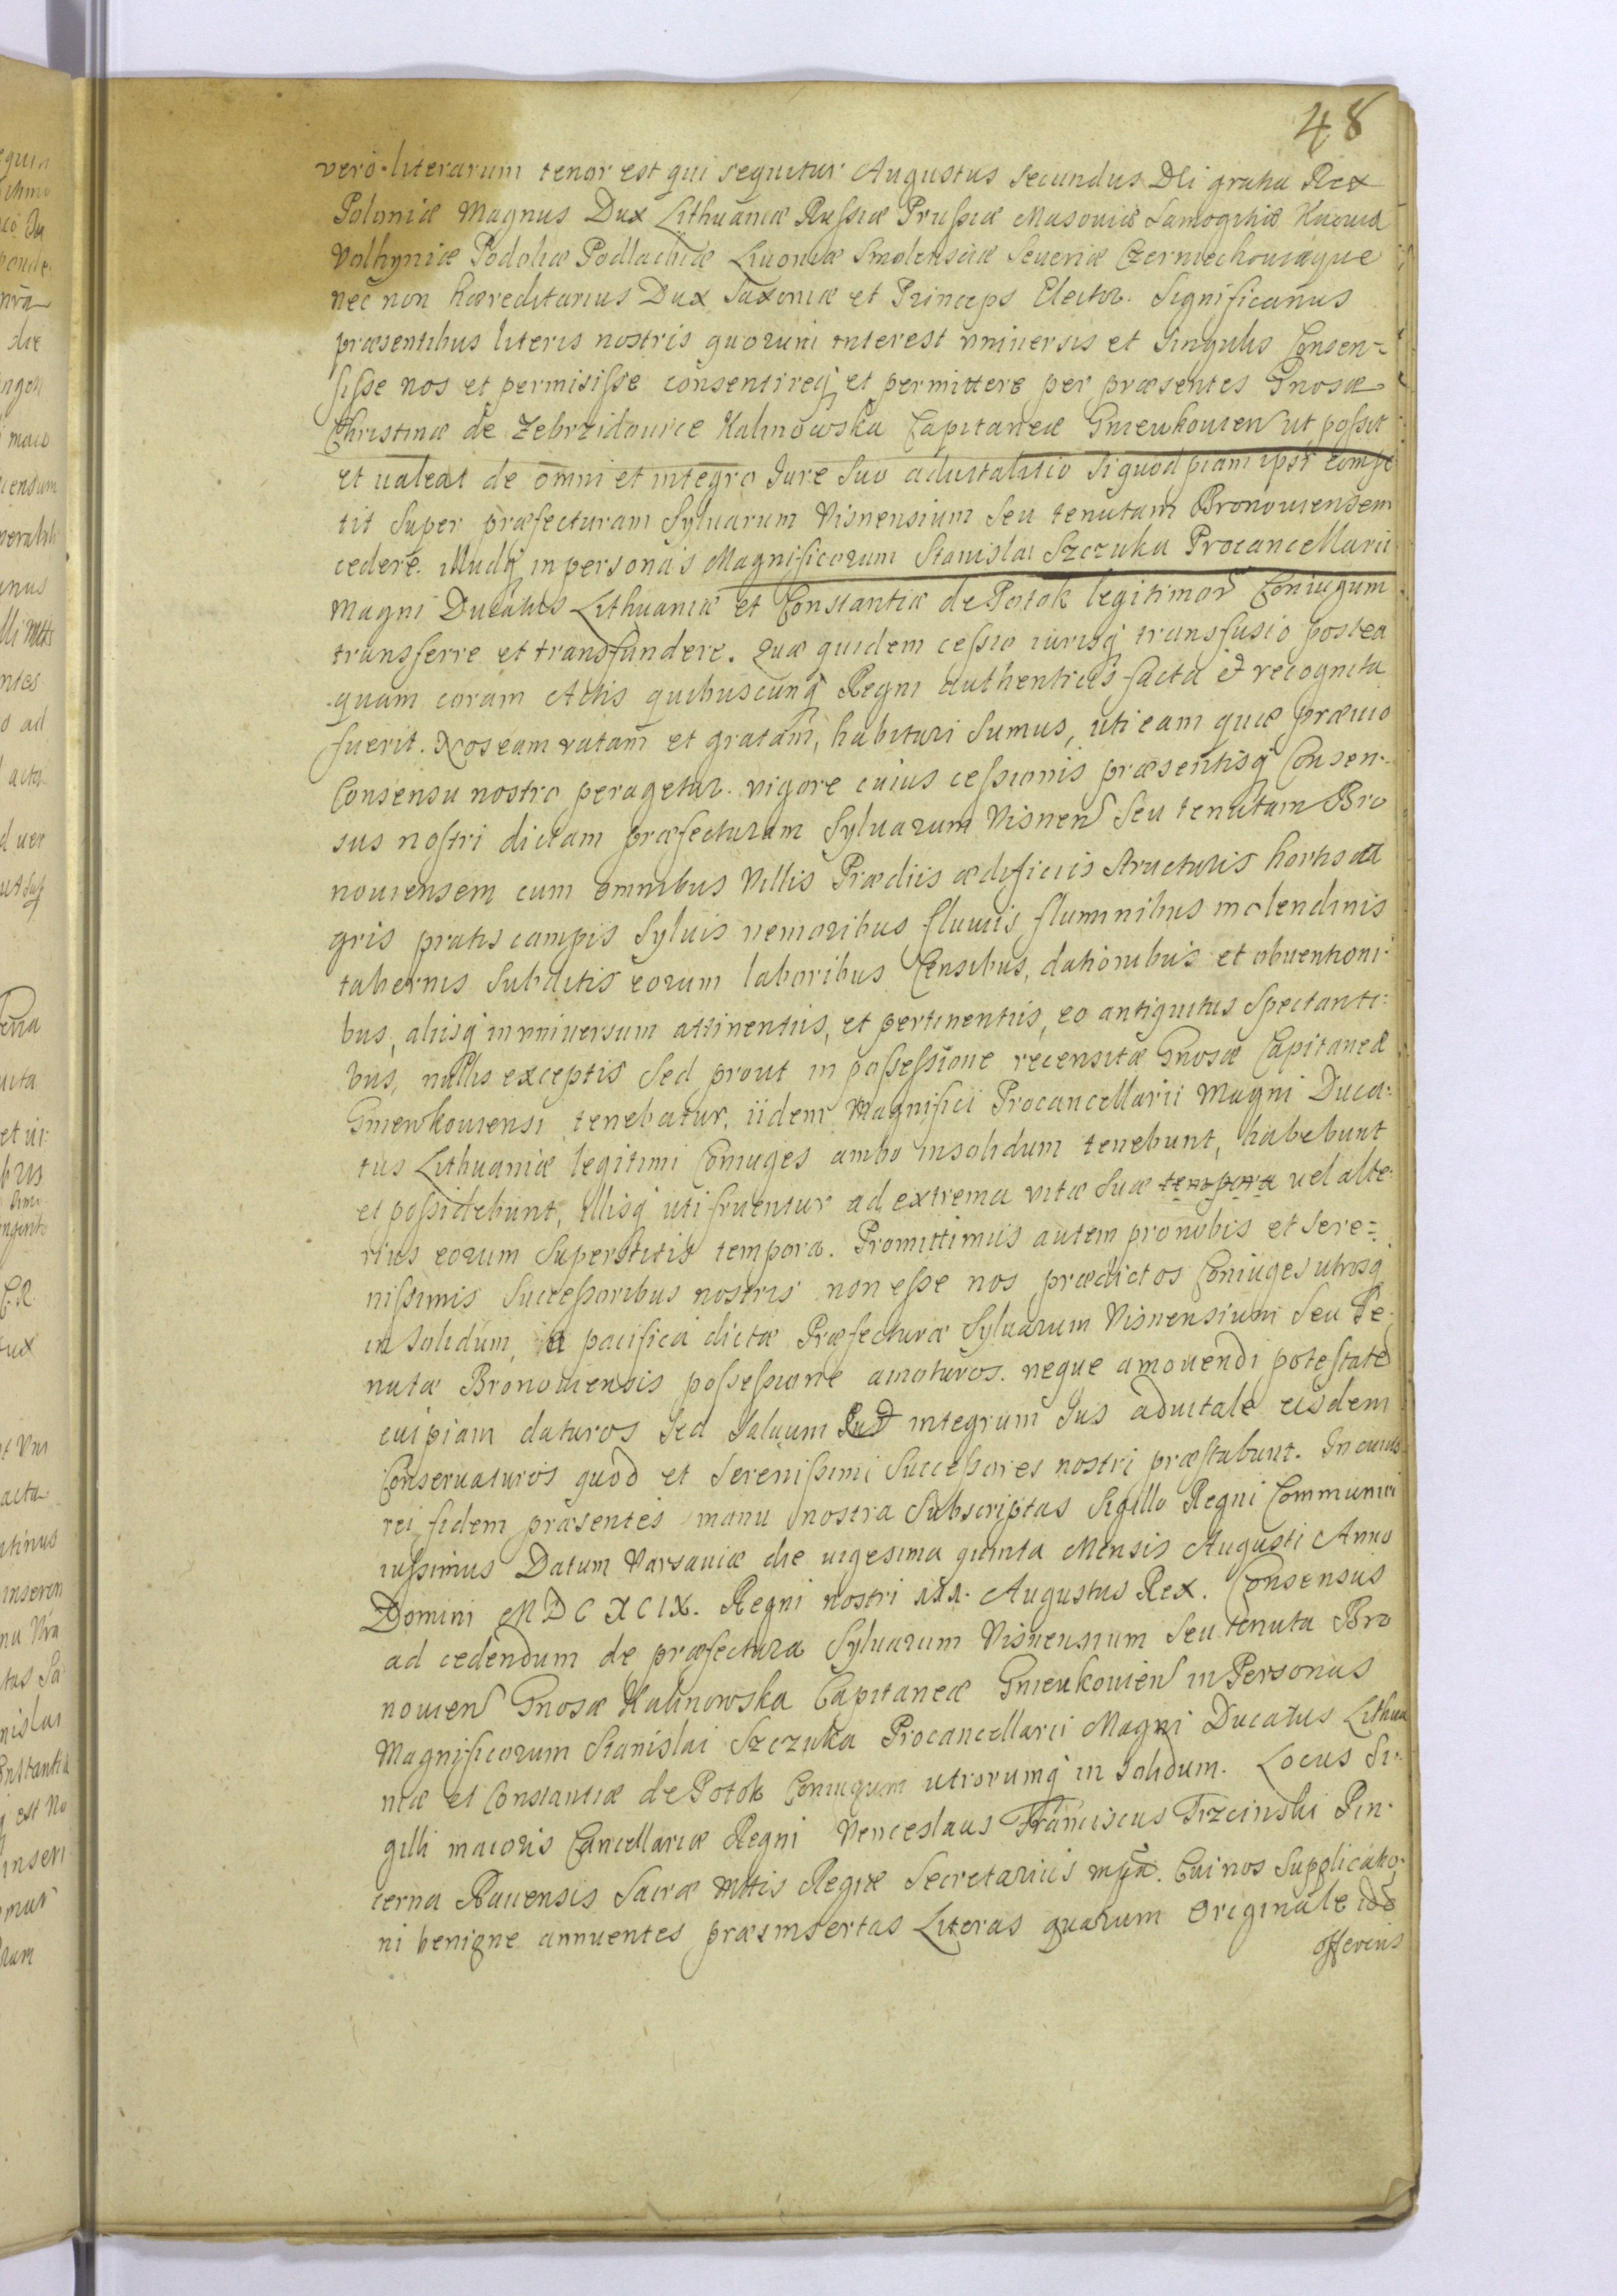 48
vero literarum tenor est qui sequitur Augustus Secundus Dei gratia Rex
Poloniæ Magnus Dux Lithuaniæ Russiæ Prussiæ Masoviæ Samogitiæ Kiioviæ
Volhyniæ Podoliæ Podlachiæ Livoniæ Smolensciæ Severiæ Czerniechoviæque
nec non hæreditarius Dux Saxoniæ et Princeps Elector. Significamus
præsentibus literis nostris quorum interest vniuersis et singulis Consen-
sisse nos et permisisse consentireq et permittere per præsentes Gnosæ
Christinæ de Zebrzidowice Kalinowska Capitaneæ Gnieukouien ut possit
et ualeat de omni et integro Jure Suo aduitalitio Si quodpiam ipsi compe
tit Super præfecturam Syluarum Visnensium Seu tenutam Bronouiensem
cedere. illudq in personas Magnificorum Stanislai Szczuka Procancellarii
Magni Ducatus Lithuaniæ et Constantiæ de Potok legitimor Coniugum
transferre et transfundere. Quæ quidem cessio iurisq transfusio postea
quam coram Actis quibuscunq Regni authenticis facta et recognita
fuerit. Nos eam ratam et gratam, habituri Sumus, uti eam quæ præuio
Consensu nostro peragetur. vigore cuius cessionis præsentisq Consen-
sus nostri dictam præfecturam Syluarum Visnen Seu tenutam Bro
nouiensem cum omnibus Villis Prædiis ædificiis structuris hortis a
gris pratis campis Syluis nemoribus fluuiis fluminibus molendinis
tabernis Subditis eorum laboribus Censibus, dationibus et obuentioni-
bus, aliisq in vniuersum attinentiis, et pertinentiis, eo antiquitus Spectanti-
bus, nullis exceptis Sed prout in possessione recensitæ Gnosæ Capitaneæ
Gniewkouiensi tenebatur, iidem Magnifici Procancellarii Magni Duca-
tus Lithuaniæ legitimi Coniuges ambo insolidum tenebunt, habebunt
et possidebunt, illisq uti fruentur ad extrema vitæ Suæ tempora uel alte-
rius eorum Superstitis tempora. Promittimus autem pro nobis et Sere=
nissimis Successoribus nostris non esse nos prædictos Coniuges utrosq
in Solidum, a pacifica dictæ Præfecturæ Syluarum Visnensium Seu Te-
nutæ Bronouiensis possessione amoturos. neque amouendi potestatē
cuipiam daturos Sed Saluum integrum Jus aduitale eisdem
Conseruaturos quod et Serenissimi Successores nostri præstabunt. In cuius
rei fidem præsentes manu nostra Subscriptas Sigillo Regni Communiri
iussimus Datum Varsauiæ die uigesima quinta Mensis Augusti Anno
Domini MDCXCIX. Regni nostri Augustus Rex. Consensus
ad cedendum de præfectura Syluarum Visnensium Seu tenuta Bro
nouien Gnosæ Kalinowska Capitaneæ Gnieukouien in Personas
Magnificorum Stanislai Szczuka Procancellarii Magni Ducatus Lithua
niæ et Constantiæ de Potok Coniugum utrorumq in Solidum. Locus Si-
gilli maioris Cancellariæ Regni Venceslaus Franciscus Trzcinski Pin-
cerna Rauensis Sacræ Mttis Regiæ Secretarius mpa. Cui nos Supplicatio-
ni benigne annuentes præsinsertas Literas quarum Originale
offerens